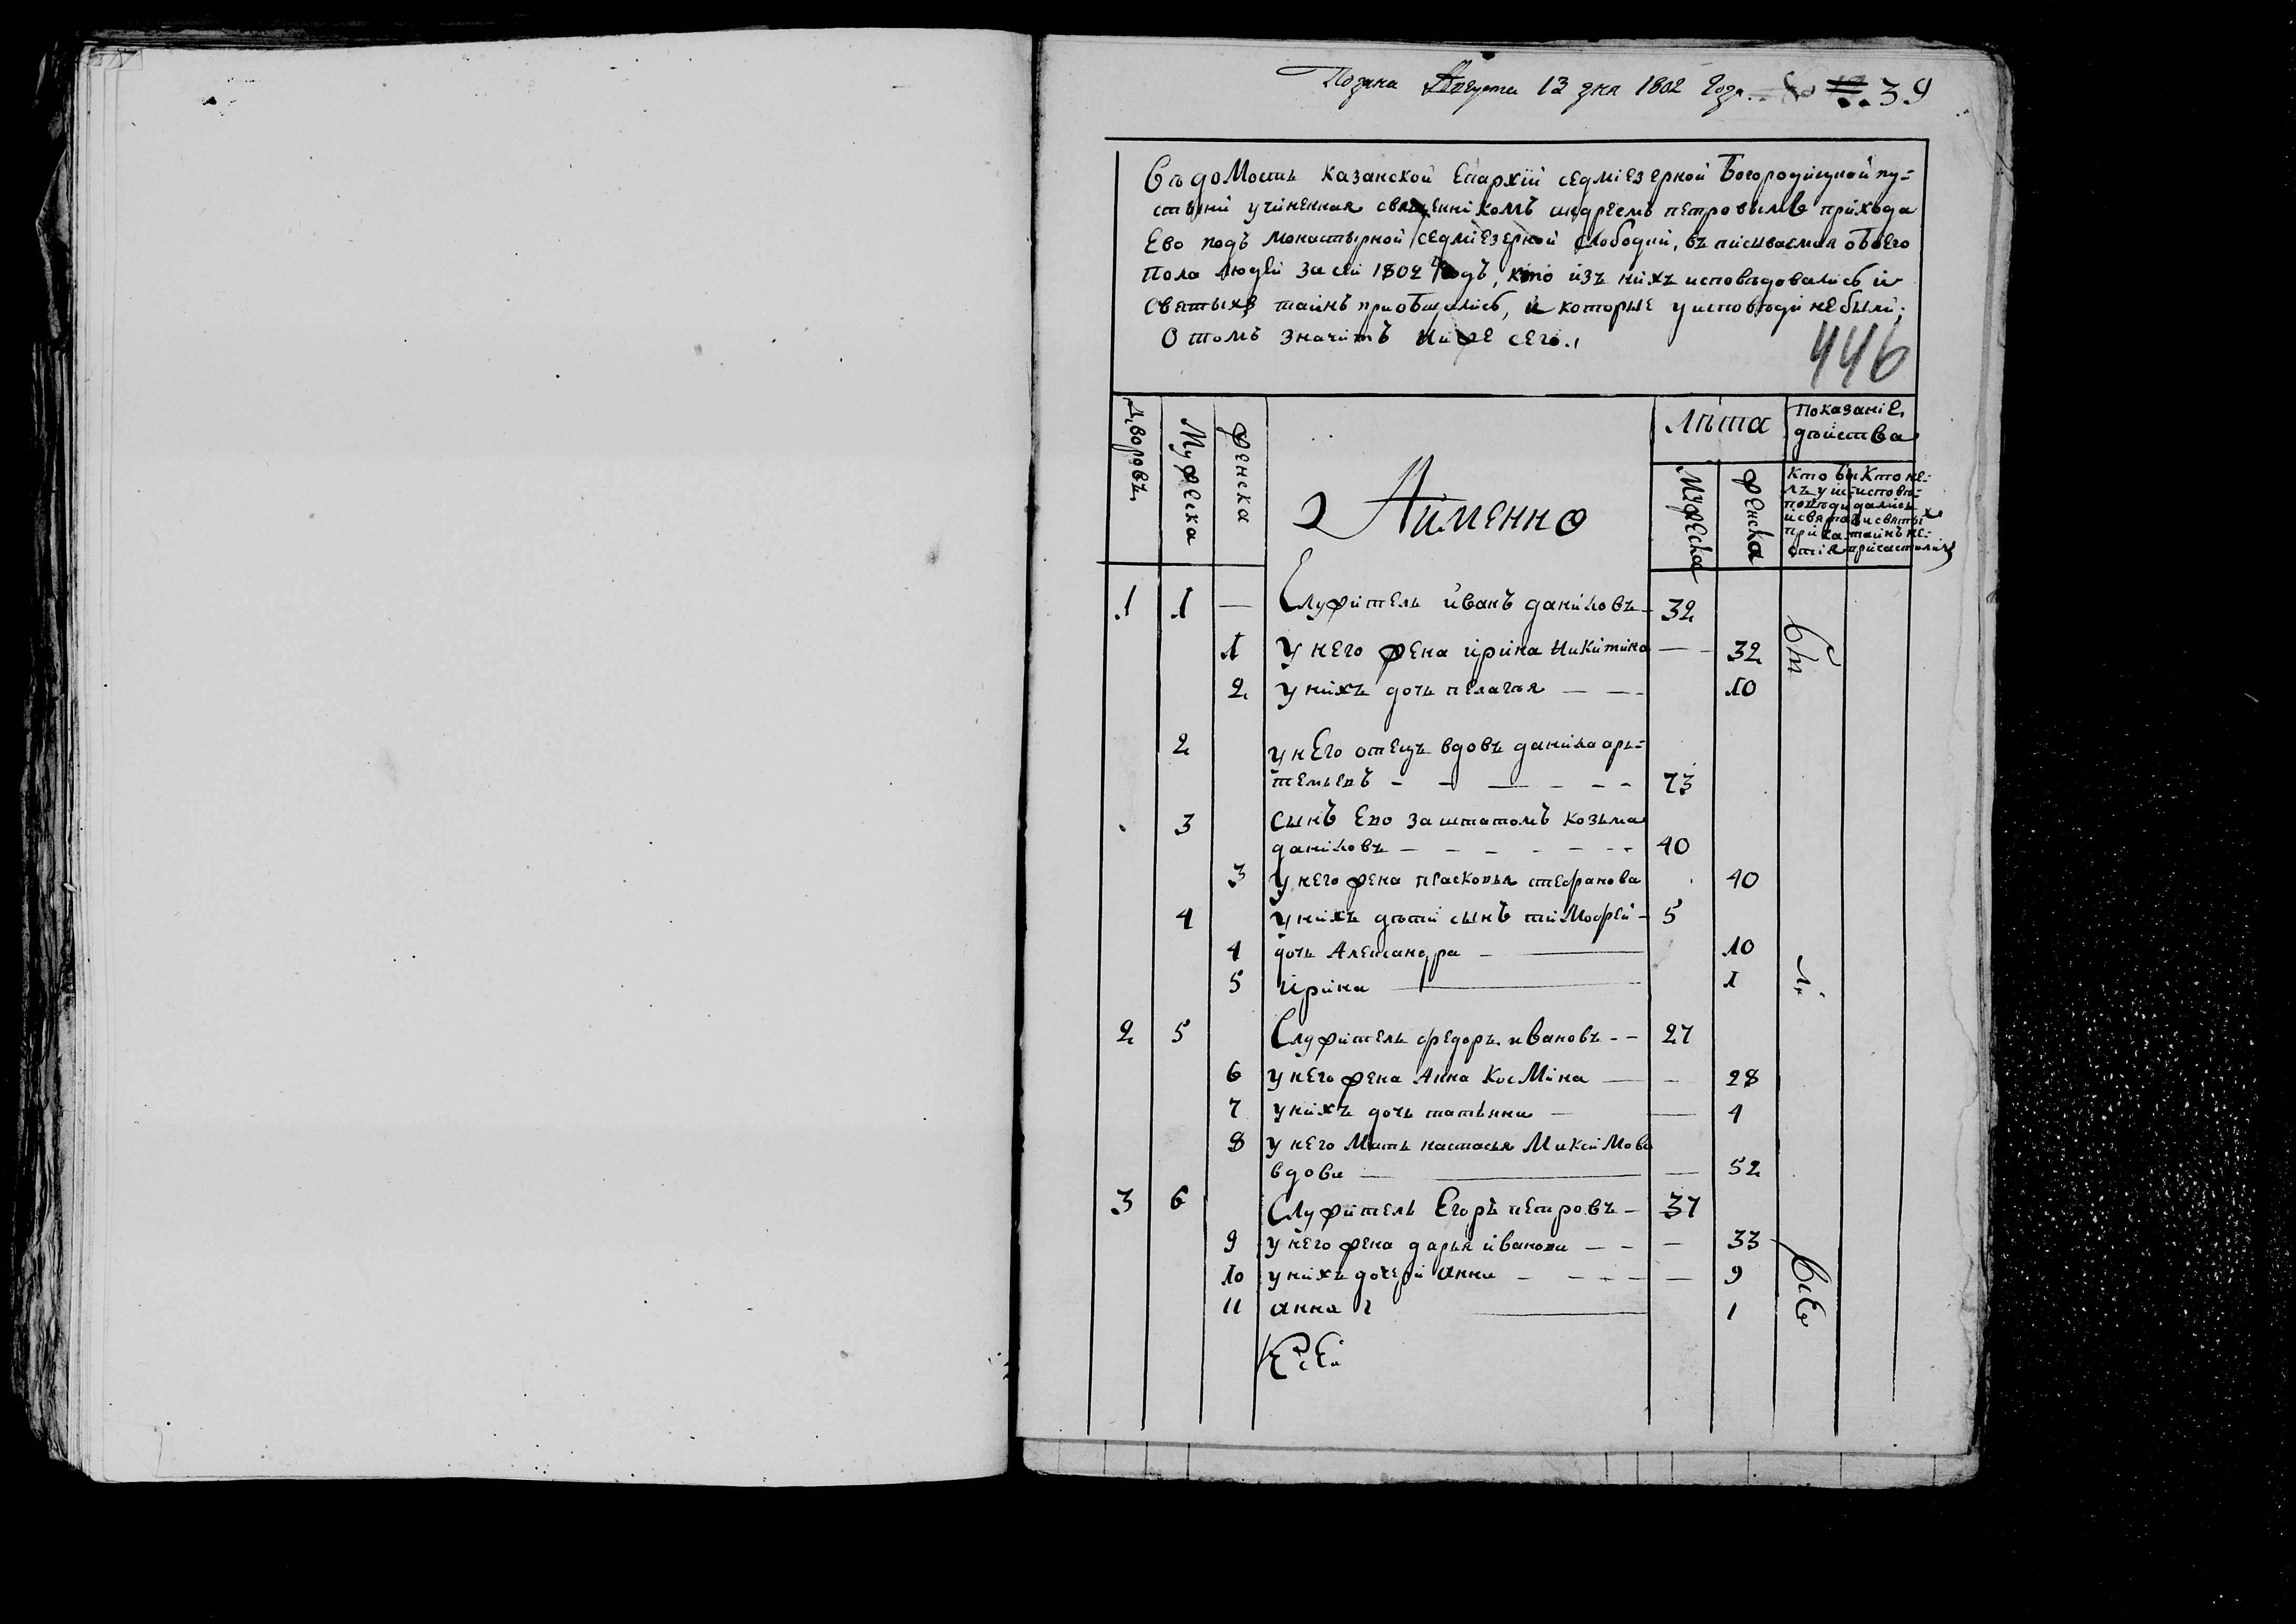 Подана Августа 13 дня 1802 года
39
Вѣдомость Казанской Епархіи седміезерной Богородицкой пу=
стыни учиненная священникомъ андреемъ петровымъ прихода
Ево подъ монастырной седміезерной слободки, въ писываемыя обоего
пола людей за сей 1802 годъ, кто изъ нихъ исповѣдовались и
святыхъ таинъ приобщились, и которые у исповѣди не были;
О томъ значитъ ниже сего.
446
Дворовъ Мужеска женска Аименно Лѣта Показаніе
дѣйства
Мужеска женска
1 1 — Служитель иванъ даниловъ 32
1 у него жена ирина никитина — 32
2 у нихъ дочь пелагея — — 10
2 у него отецъ вдовъ данила арь=
темьевъ — — — — — 73
3 сынъ Ево заштатомъ козьма
даниловъ — — — — — 40
3 у него жена прасковья стефанова 40
4 у нихъ дѣти сынъ тимофей — 5
4 дочь Александра — 10
5 ирина — 1
2 5 Служитель федоръ ивановъ — — 27
6 у него жена Анна Космина — — 28
7 у нихъ дочь татьяна — — 4
8 у него мать настасья Максимова
вдова — — 52
3 6 Служитель Егоръ петровъ — 37
9 у него жена дарья иванова — — — 33
10 у нихъ дочери анна — — — — 9
11 анна 2 — 1